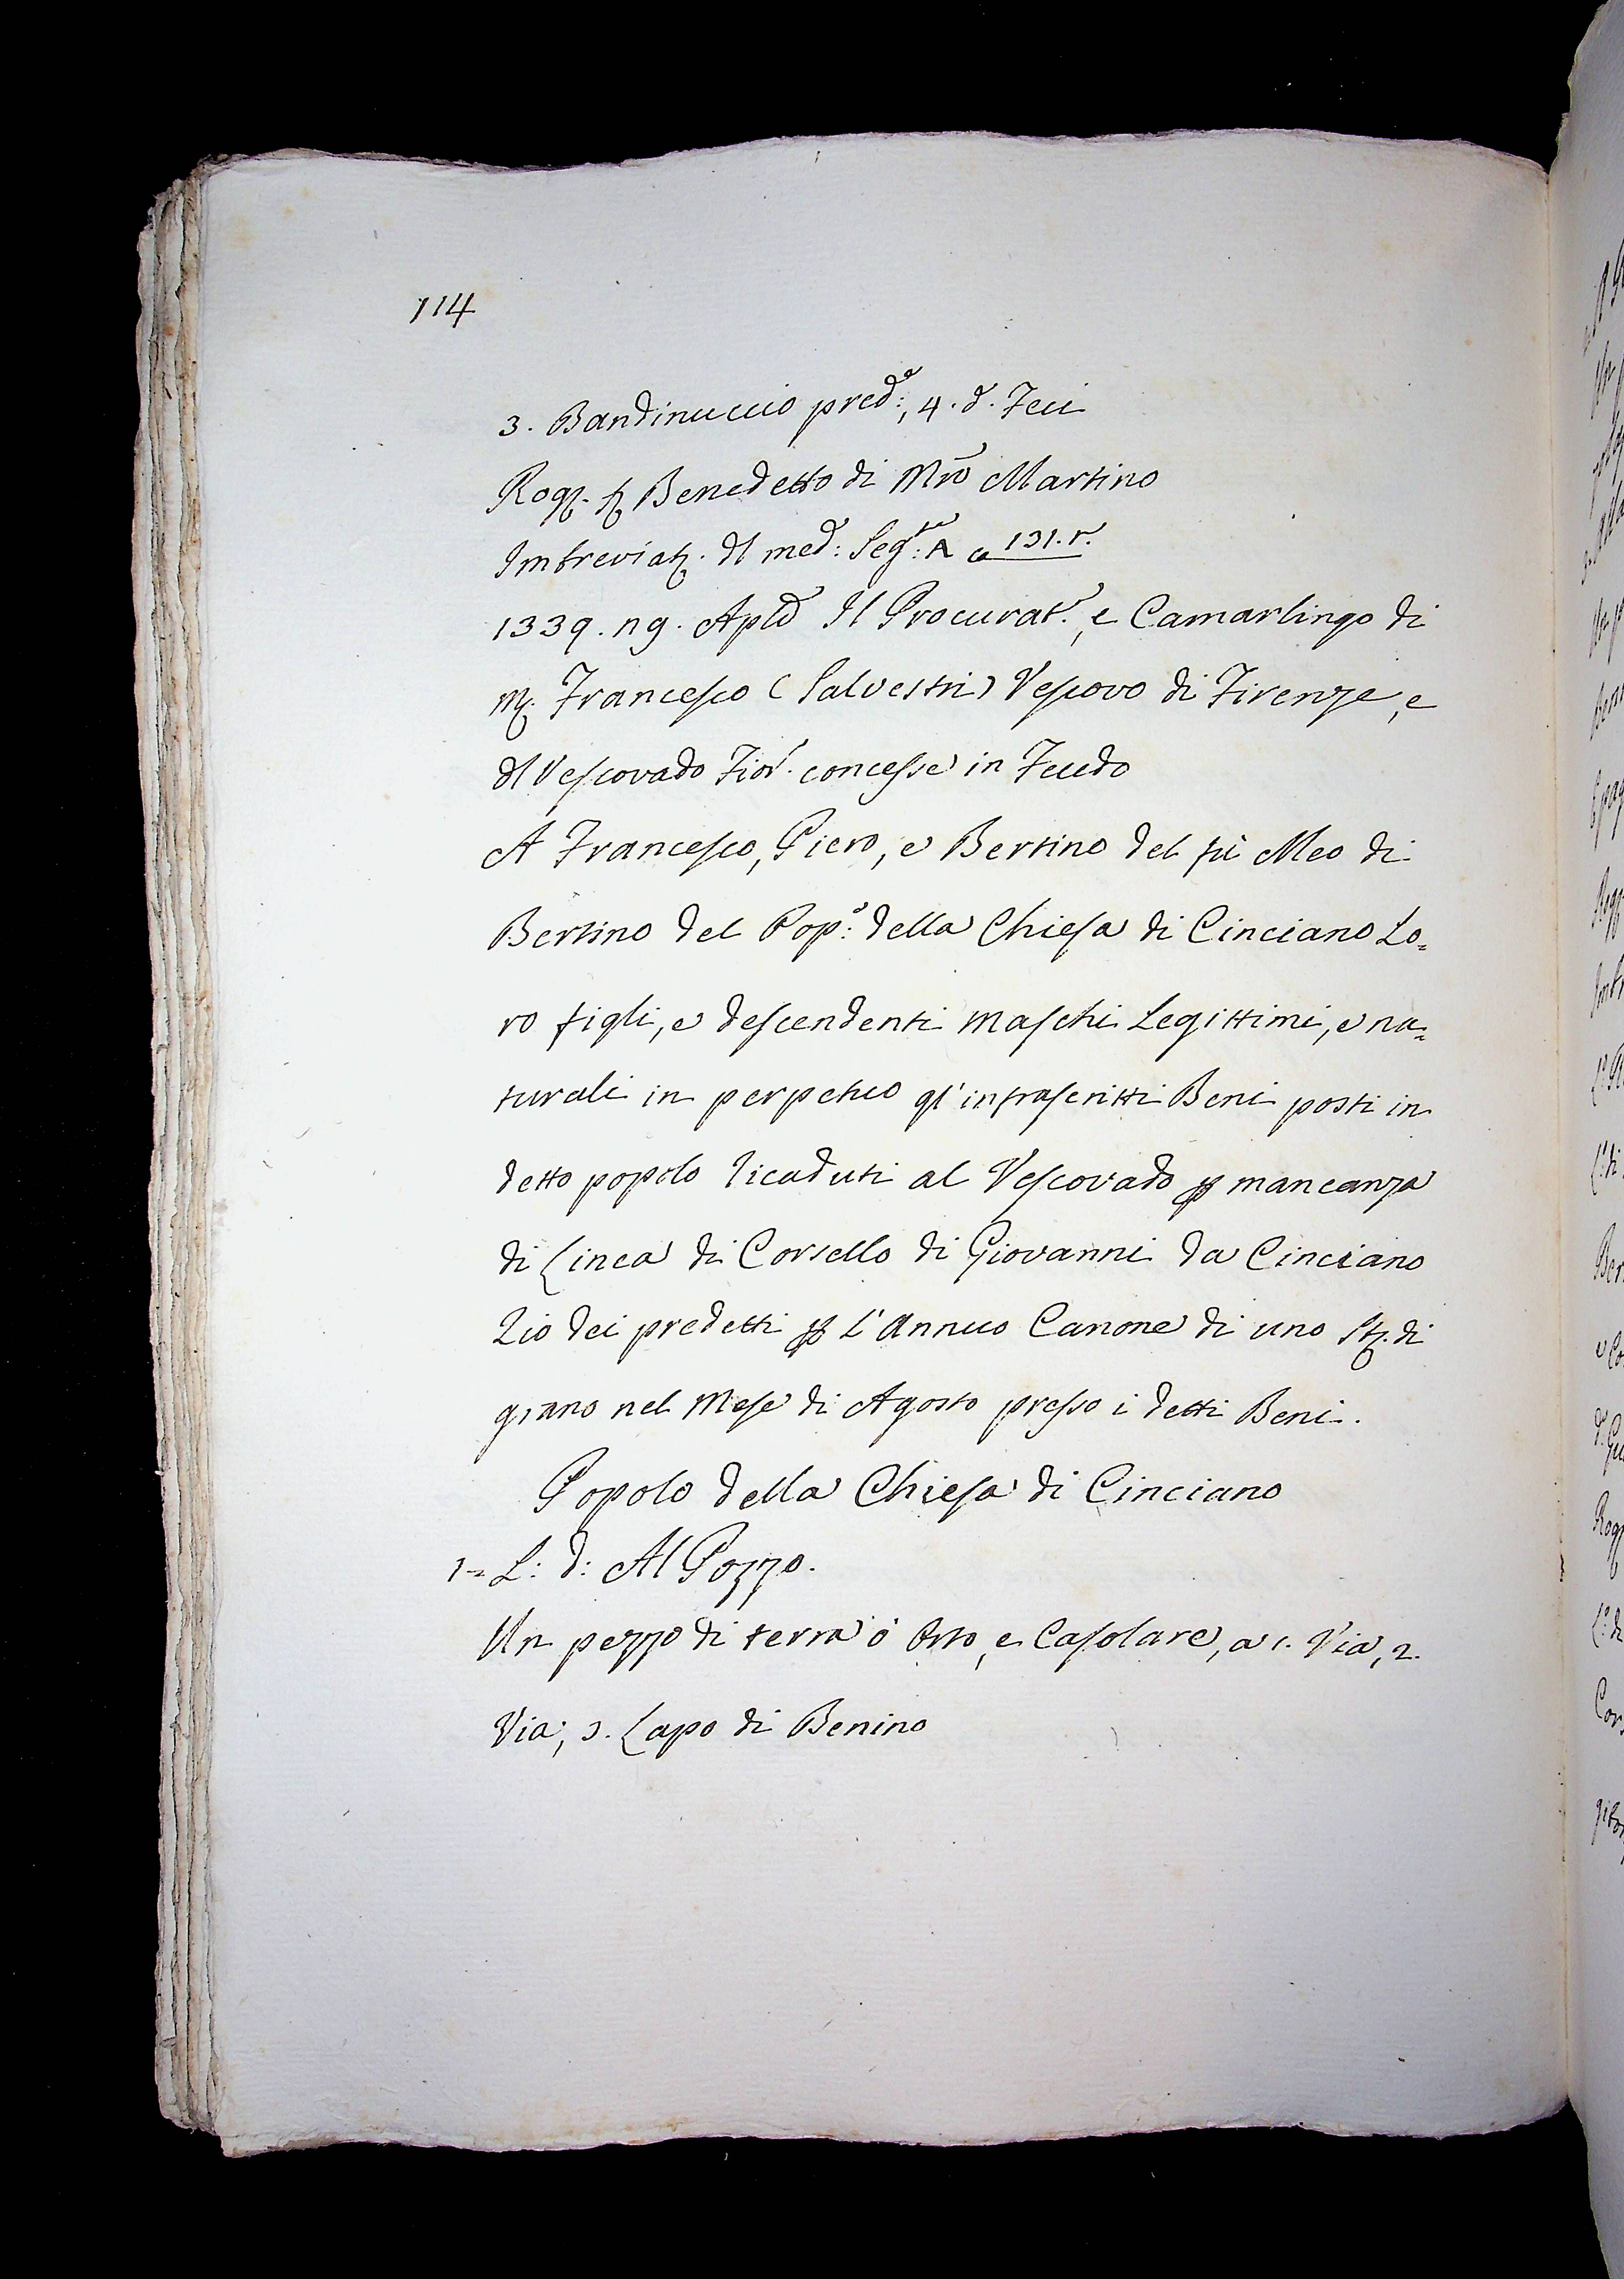 114
3. Bandinuccio pred:º, 4. d. Feci
Rog. S. Benedetto di Mrõ Martino
Imbreviat. dl med: Seg:to A a 131. r.
1339. ng. Aplẽ Il Procurat.r, e Camarlingo di
M. Francesco (Salvestri) Vescovo di Firenze, e
dl Vescovado Fior. concesse in Feudo
A Francesco, Piero, e Bertino del fù Meo di
Bertino del Pop:º della Chiesa di Cinciano Lo=
ro figli, e descendenti maschi Legittimi, e na=
turali in perpetuo gl'infrascritti Beni posti in
detto popolo ricaduti al Vescovado p mancanza
di Linea di Corsello di Giovanni da Cinciano
Zio dei predetti p l'Annuo Canone di uno St. di
grano nel Mese di Agosto presso i detti Beni.
Popolo della Chiesa di Cinciano
1= L: d: Al Pozzo.
Un pezzo di terra ò Orto, e Casolare, a 1. Via, 2.
Via; 3. Lapo di Benino